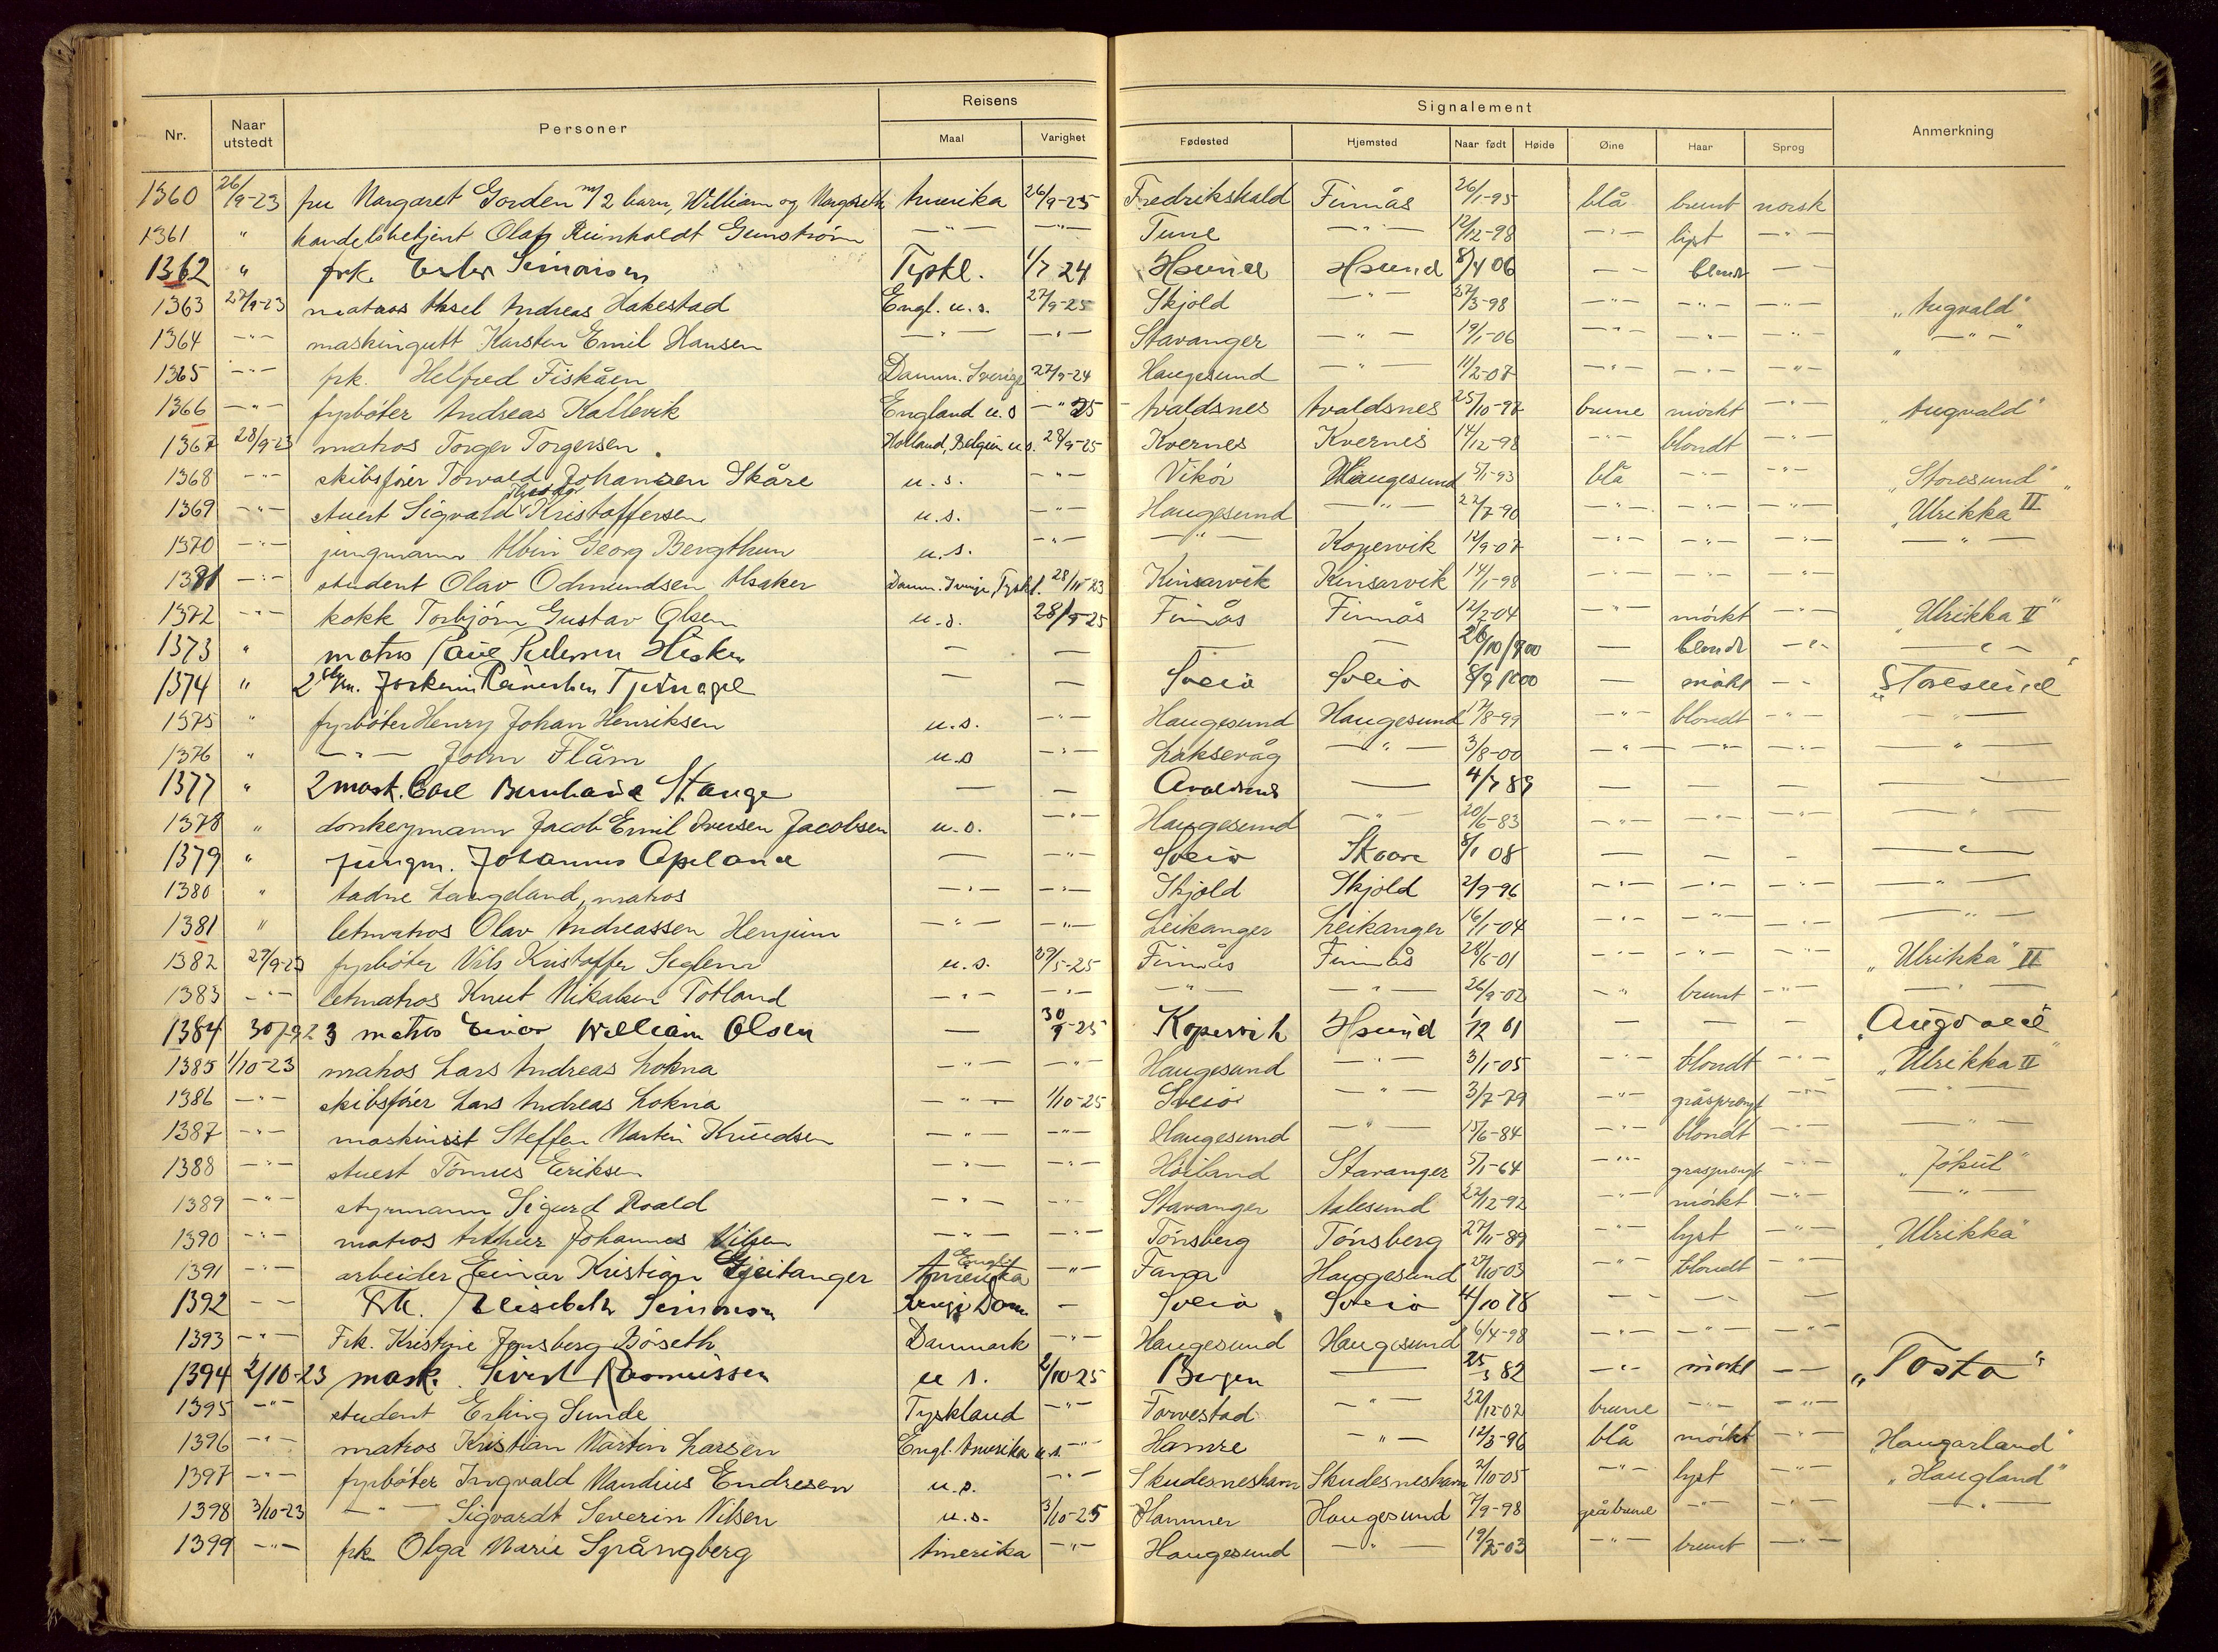 Reisens
Signalement
Nr. Naar utstedt Personer Maal Varighet Fødested Hjemsted Naar født Høide Øine Haar Sprog Anmerkning
1360 26/9-23 fru Margaret Gorden m/2 barn, William og Margareth Amerika 26/9-25 Fredrikshald Finnås 26/1-95 blå brunt norsk
1361 " handelsbetjent Olaf Reinholdt Gunstrøm —"— —"— Tune —"— 12/12-98 —"— lyst —"—
1362 " frk. Ester Simonsen Tyskl. 1/7 24 Hsund Hsund 8/4 06 — — blondt — —
1363 27/9-23 matros Aksel Andreas Hakestad Engl. u.s. 27/9-25 Skjold —"— 27/3-98 —"— —"— —"— "Augvald"
1364 —"— maskingutt Karsten Emil Hansen —"— —"— Stavanger —"— 19/1-06 —"— —"— —"— —"—
1365 —"— frk. Helfred Fiskåen Danm. Sverige 27/9-24 Haugesund —"— 11/2-07 —"— —"— —"—
1366 —"— fyrbøter Andreas Kallevik England u.s —"— 25 Avaldsnes Avaldsnes 25/10-97 brune mørkt —"— "Augvald"
1367 28/9-23 matros Torger Torgersen Holland, Belgien u.s. 28/9-25 Kvernes Kvernes 14/12-98 —"— blondt —"—
1368 —"— skibsfører Torvald Johansen Skåre u.s. —"— Vikør Haugesund 5/1-93 blå —"— —"— "Storesund"
1369 —"— stuert Sigvald Theodor Kristoffersen u.s. —"— Haugesund —"— 22/7-90 —"— —"— —"— "Ulrikka II"
1370 —"— jungmann Albin Georg Bergthun u.s. —"— —"— Kopervik 12/9-07 —"— —"— —"— —"—
1371 —"— student Olav Odmundsen Alsaker Danm. Sverige, Tyskl. 28/11-23 Kinsarvik Kinsarvik 14/1-98 —"— —"— —"—
1372 —"— kokk Torbjørn Gustav Olsen u.s. 28/9-25 Finnås Finnås 12/2-04 —"— mørkt —"— "Ulrikka II"
1373 " matros Pedersen — — — — 26/10 1900 — blondt —"— —"—
1374 " 2 Tjernagel — — Sveio Sveio 8/9 1900 — mørkt —"— "Storesund"
1375 " fyrbøter Henry Johan Henriksen u.s. —"— Haugesund Haugesund 17/8-99 —"— blondt —"— —"—
1376 " —"— John Flåm u.s —"— Laksevåg —"— 3/8-00 —"— —"— —"— "
1377 " 2 mask. Carl Bernhard Stange — — Avaldsnes — 4/7 89 — — — —
1378 " donkeymann Jacob Emil Iversen Jacobsen u.s. —"— Haugesund —"— 20/6-83 —"— —"— —"— —"—
1379 " jungm. Johannes Apeland — —"— Sveio Skaare 8/1 08 — — — —"—
1380 " Ladne Langeland, matros —"— —"— Skjold Skjold 2/9-96 —"— —"— —"— —"—
1381 " letmatros Olav Andreassen Henjum —"— —"— Leikanger Leikanger 16/1-04 —"— —"— —"— —"—
1382 29/9-23 fyrbøter Nils Kristoffer Seglem u.s. 29/5-25 Finnås Finnås 28/6-01 —"— —"— —"— "Ulrikka" II
1383 —"— letmatros Knut Nikalsen Totland —"— —"— —"— —"— 26/9-02 —"— brunt —"— —"—
1384 30/9-23 matros Einar William Olsen — 30/9-25 Kopervik Hsund 1/12 01 — — — "Augvald"
1385 1/10-23 matros Lars Andreas Lokna —"— —"— Haugesund —"— 3/1-05 —"— blondt —"— "Ulrikka II"
1386 —"— skibsfører Lars Andreas Lokna —"— 1/10-25 Sveio —"— 3/7-79 —"— gråsprengt —"— —"—
1387 —"— maskinist Steffen Martin Knudsen —"— —"— Haugesund —"— 15/6-84 —"— blondt —"— —"—
1388 —"— stuert Tønnes Eriksen —"— —"— Høiland Stavanger 5/1-64 —"— gråsprengt —"— "Jøkul"
1389 —"— styrmann Sigurd Roald —"— —"— Stavanger Aalesund 22/12-92 —"— mørkt —"— —"—
1390 —"— matros Arthur Johannes Nilsen —"— —"— Tønsberg Tønsberg 27/11-89 —"— lyst —"— "Ulrikka"
1391 —"— arbeider Einar Kristian Gjeitanger Engl. Amerika —"— Fana Haugesund 27/10-03 —"— blondt —"—
1392 — — Frk. Elisabeth Simonsen Sverige Danm — Sveio Sveio 4/10 78 —"— — —
1393 —"— Frk. Kristine Jonsberg Børseth Danmark —"— Haugesund Haugesund 6/4-98 —"— —"— —"—
1394 2/10-23 mask. Sivert Rasmussen u s. 2/10-25 Bergen — 25/3 82 —"— mørkt — — "Tosto"
1395 —"— student Erling Sunde Tyskland —"— Torvestad —"— 22/12-02 brune —"— —"—
1396 —"— matros Kristian Martin Larsen Engl. Amerika u.s. —"— Hamre —"— 12/3-96 blå mørkt —"— "Haugarland"
1397 —"— fyrbøter Ingvald Mandius Endresen u.s. —"— Skudesneshavn Skudesneshavn 2/10-05 —"— lyst —"— "Haugland"
1398 3/10-23 —"— Sigvardt Severin Nilsen u.s. 3/10-25 Hammer Haugesund 7/9-98 gråbrune —"— —"— —"—
1399 —"— frk. Olga Marie Språngberg Amerika —"— Haugesund —"— 19/2-03 —"— brunt —"—